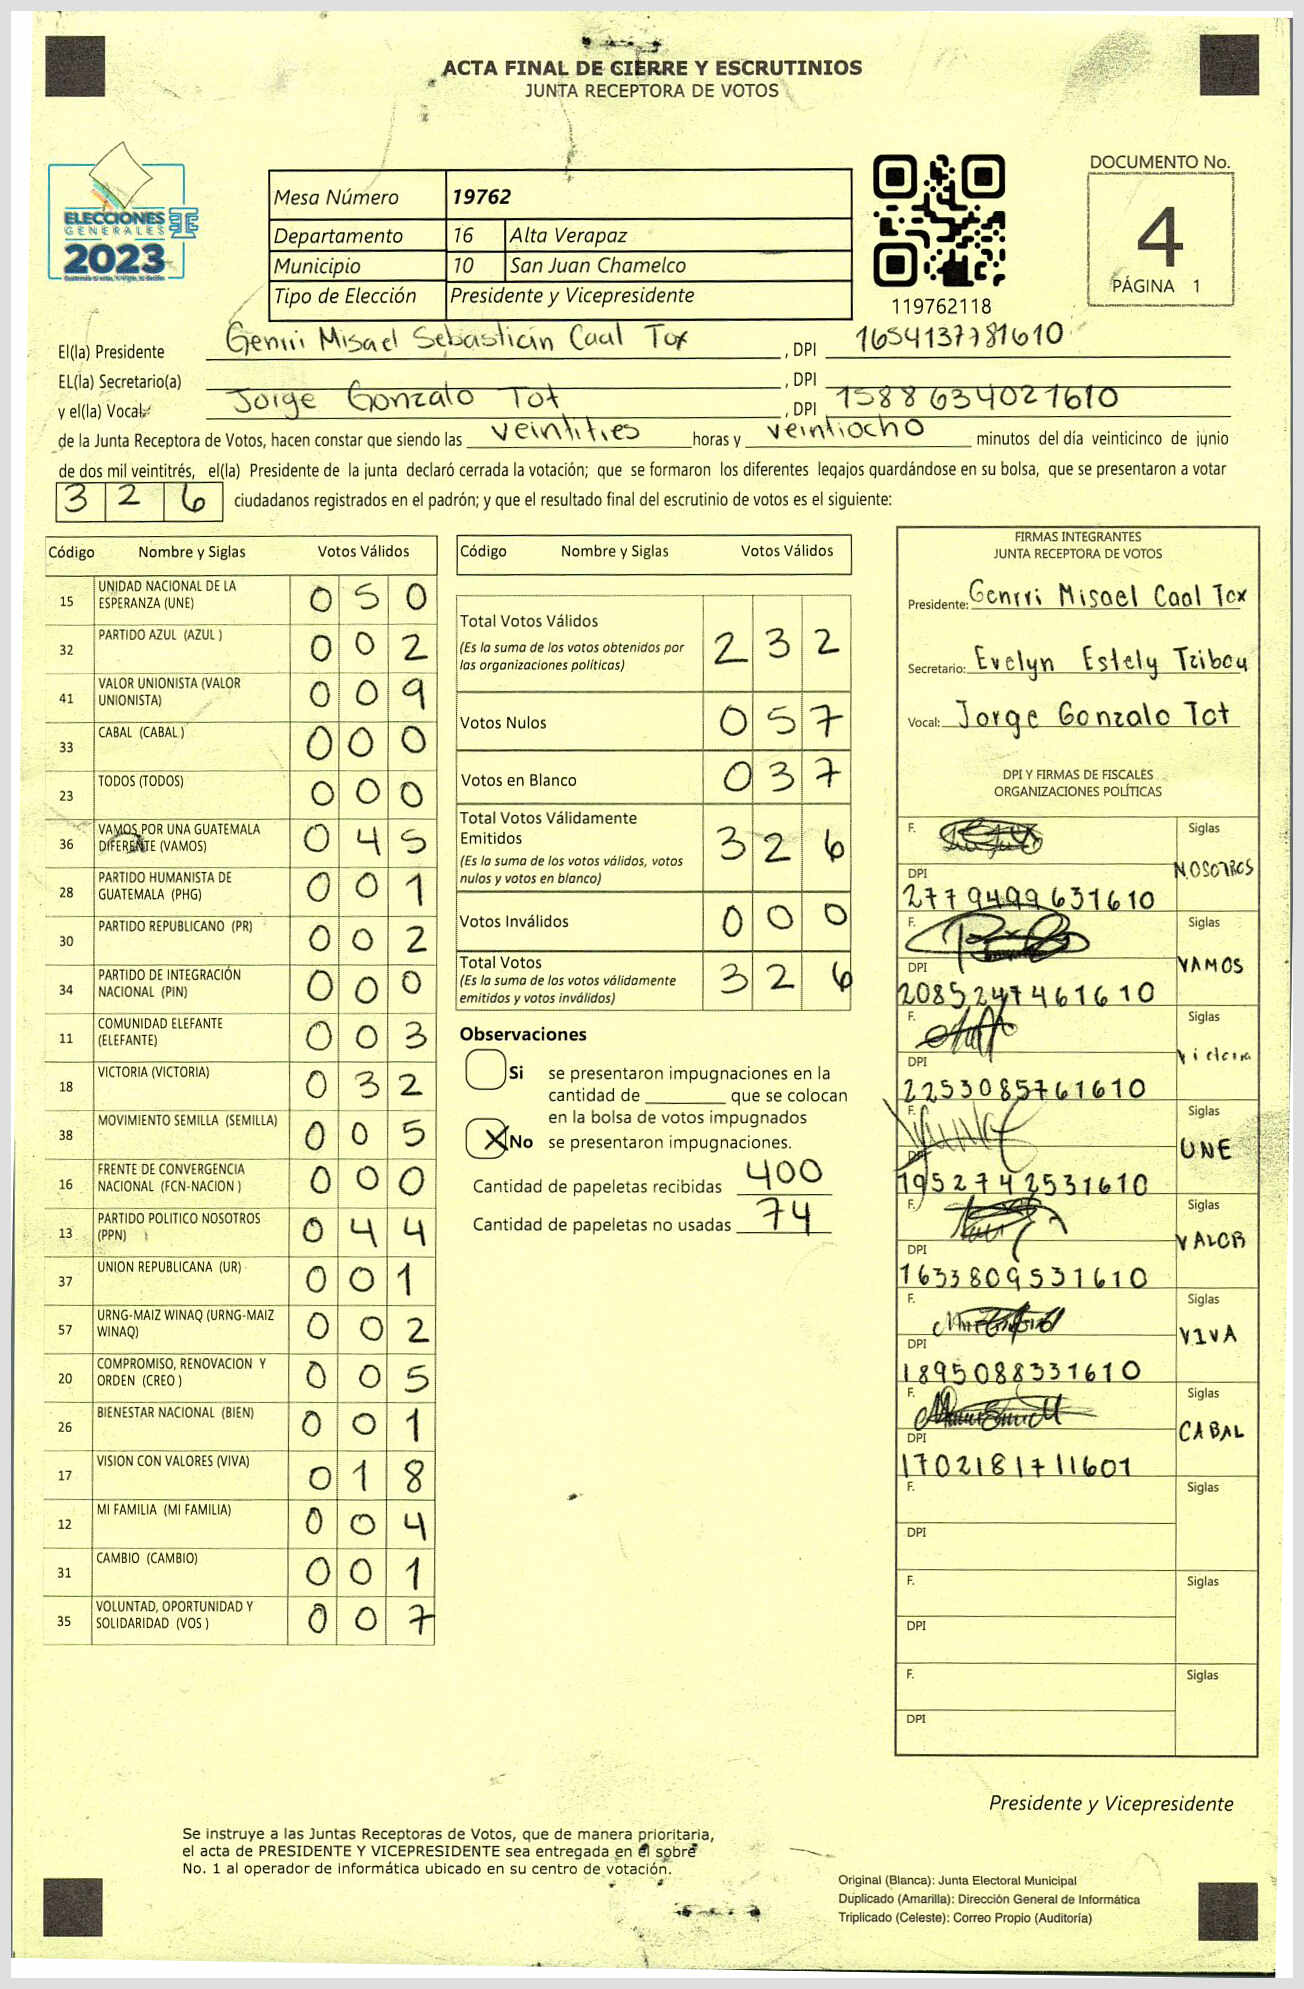 ACTA FINAL DE CIERRE Y ESCRUTINIOS
JUNTA RECEPTORA DE VOTOS
ELECCIONES
GENERALES
2023
Mesa Número 19762
Departamento 16 Alta Verapaz
Municipio 10 San Juan Chamelco
Tipo de Elección Presidente y Vicepresidente
119762118
DOCUMENTO No.
4
PÁGINA 1
El(la) Presidente Genrri Misael Sebastián Caal Tox , DPI 1654137781610
EL(la) Secretario(a) , DPI
y el(la) Vocal Jorge Gonzalo Tot , DPI 1588634021610
de la Junta Receptora de Votos, hacen constar que siendo las veintitres horas y veintiocho minutos del día veinticinco de junio
de dos mil veintitrés, el(la) Presidente de la junta declaró cerrada la votación; que se formaron los diferentes legajos guardándose en su bolsa, que se presentaron a votar
3 2 6 ciudadanos registrados en el padrón; y que el resultado final del escrutinio de votos es el siguiente:
Código Nombre y Siglas Votos Válidos
15 UNIDAD NACIONAL DE LA ESPERANZA (UNE) 0 5 0
32 PARTIDO AZUL (AZUL ) 0 0 2
41 VALOR UNIONISTA (VALOR UNIONISTA) 0 0 9
33 CABAL (CABAL ) 0 0 0
23 TODOS (TODOS) 0 0 0
36 VAMOS POR UNA GUATEMALA DIFERENTE (VAMOS) 0 4 5
28 PARTIDO HUMANISTA DE GUATEMALA (PHG) 0 0 1
30 PARTIDO REPUBLICANO (PR) 0 0 2
34 PARTIDO DE INTEGRACIÓN NACIONAL (PIN) 0 0 0
11 COMUNIDAD ELEFANTE (ELEFANTE) 0 0 3
18 VICTORIA (VICTORIA) 0 3 2
38 MOVIMIENTO SEMILLA (SEMILLA) 0 0 5
16 FRENTE DE CONVERGENCIA NACIONAL (FCN-NACION ) 0 0 0
13 PARTIDO POLITICO NOSOTROS (PPN) 0 4 4
37 UNION REPUBLICANA (UR) 0 0 1
57 URNG-MAIZ WINAQ (URNG-MAIZ WINAQ) 0 0 2
20 COMPROMISO, RENOVACION Y ORDEN (CREO ) 0 0 5
26 BIENESTAR NACIONAL (BIEN) 0 0 1
17 VISION CON VALORES (VIVA) 0 1 8
12 MI FAMILIA (MI FAMILIA) 0 0 4
31 CAMBIO (CAMBIO) 0 0 1
35 VOLUNTAD, OPORTUNIDAD Y SOLIDARIDAD (VOS ) 0 0 7
Código Nombre y Siglas Votos Válidos
Total Votos Válidos 2 3 2
(Es la suma de los votos obtenidos por
las organizaciones políticas)
Votos Nulos 0 5 7
Votos en Blanco 0 3 7
Total Votos Válidamente
Emitidos 3 2 6
(Es la suma de los votos válidos, votos
nulos y votos en blanco)
Votos Inválidos 0 0 0
Total Votos 3 2 6
(Es la suma de los votos válidamente
emitidos y votos inválidos)
Observaciones
Si se presentaron impugnaciones en la
cantidad de que se colocan
en la bolsa de votos impugnados
X No se presentaron impugnaciones.
Cantidad de papeletas recibidas 400
Cantidad de papeletas no usadas 74
FIRMAS INTEGRANTES
JUNTA RECEPTORA DE VOTOS
Presidente: Genrri Misael Caal Tox
Secretario: Evelyn Estely Tzibou
Vocal: Jorge Gonzalo Tot
DPI Y FIRMAS DE FISCALES
ORGANIZACIONES POLÍTICAS
F. Siglas
NOSOTROS
DPI
2779499631610
F. Siglas
VAMOS
DPI
2085247461610
F. Siglas
Victoria
DPI
2253085761610
F. Siglas
UNE
DPI
1952742531610
F. Siglas
VALOR
DPI
1633809531610
F. Siglas
VIVA
DPI
1895088331610
F. Siglas
CABAL
DPI
1702181711601
F. Siglas
DPI
F. Siglas
DPI
F. Siglas
DPI
Presidente y Vicepresidente
Se instruye a las Juntas Receptoras de Votos, que de manera prioritaria,
el acta de PRESIDENTE Y VICEPRESIDENTE sea entregada en el sobre
No. 1 al operador de informática ubicado en su centro de votación.
Original (Blanca): Junta Electoral Municipal
Duplicado (Amarilla): Dirección General de Informática
Triplicado (Celeste): Correo Propio (Auditoría)